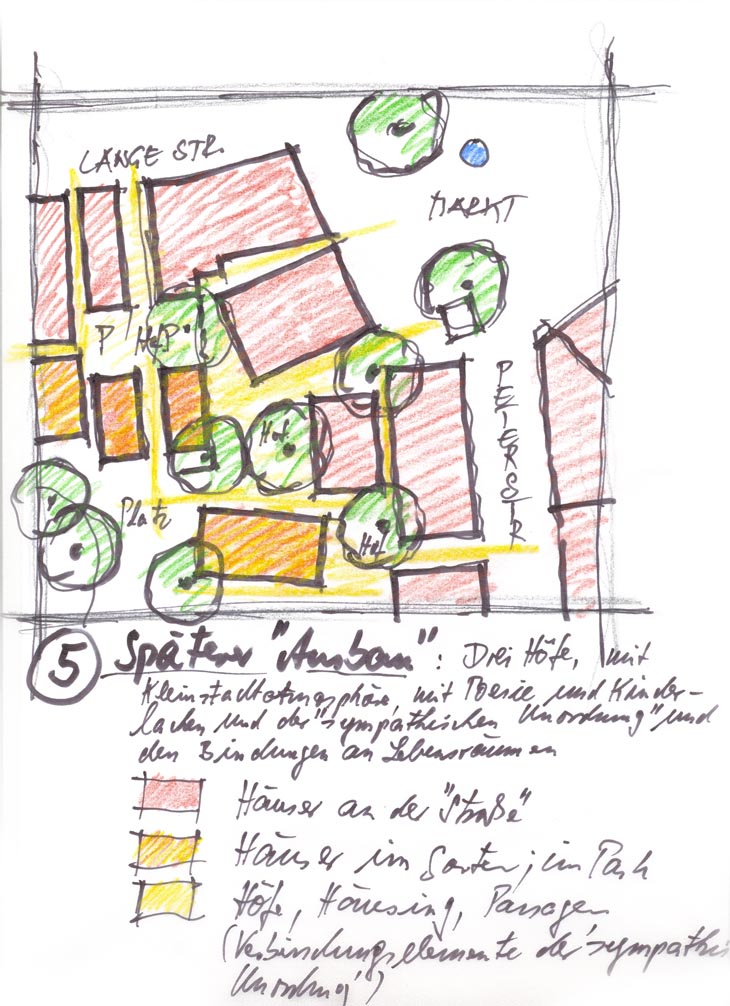 LANGE STR.
MARKT
P
"HOF"
PETERSTR
Hof
Platz
Hof
5 Späterer "Ausbau": Drei Höfe, mit
Kleinstadtatmosphäre, mit Poesie und Kinder-
lachen und der "sympathischen Unordnung" und
den Bindungen an Lebensräumen
Häuser an der "Straße"
Häuser im Garten; im Park
Höfe, Häusing, Passagen
(Verbindungselemente der 'sympathis
Unordnung')